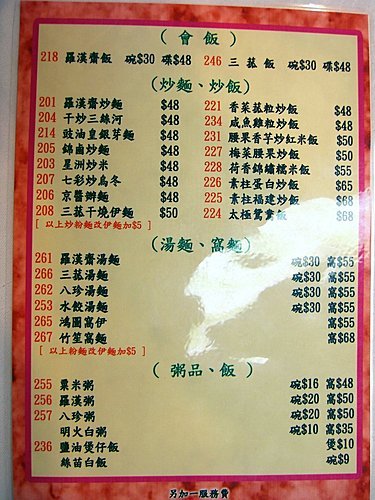 ( 會 飯 )
218 羅漢齋飯 碗$30 碟$48 246 三菰飯 碗$30 碟$48
(炒麵、炒飯)
201 羅漢齋炒麵 $48
204 干炒三絲河 $48
214 豉油皇銀芽麵 $48
205 錦鹵炒麵 $48
203 星洲炒米 $48
207 七彩炒烏冬 $48
206 京醬辦麵 $48
208 三菰干燒伊麵 $50
[ 以上炒粉麵改伊麵加$5 ]
221 香菜菰粒炒飯 $48
234 咸魚雞粒炒飯 $48
231 腰果香芋炒紅米飯 $50
227 梅菜腰果炒飯 $50
228 荷香錦繡糯米飯 $55
226 素柱蛋白炒飯 $65
225 素柱福建炒飯 $68
224 太極鴛鴦飯 $68
(湯麵、窩麵)
261 羅漢齋湯麵 碗$30 窩$55
266 三菰湯麵 碗$30 窩$55
262 八珍湯麵 碗$30 窩$55
253 水餃湯麵 碗$30 窩$55
265 鴻圖窩伊 窩$55
267 竹笙窩麵 窩$68
[ 以上粉麵改伊麵加$5 ]
( 粥品、飯 )
255 粟米粥 碗$16 窩$48
256 羅漢粥 碗$20 窩$50
257 八珍粥 碗$20 窩$50
明火白粥 碗$10 窩$35
236 鹽油煲仔飯 煲$10
絲苗白飯 碗$9
另加一服務費